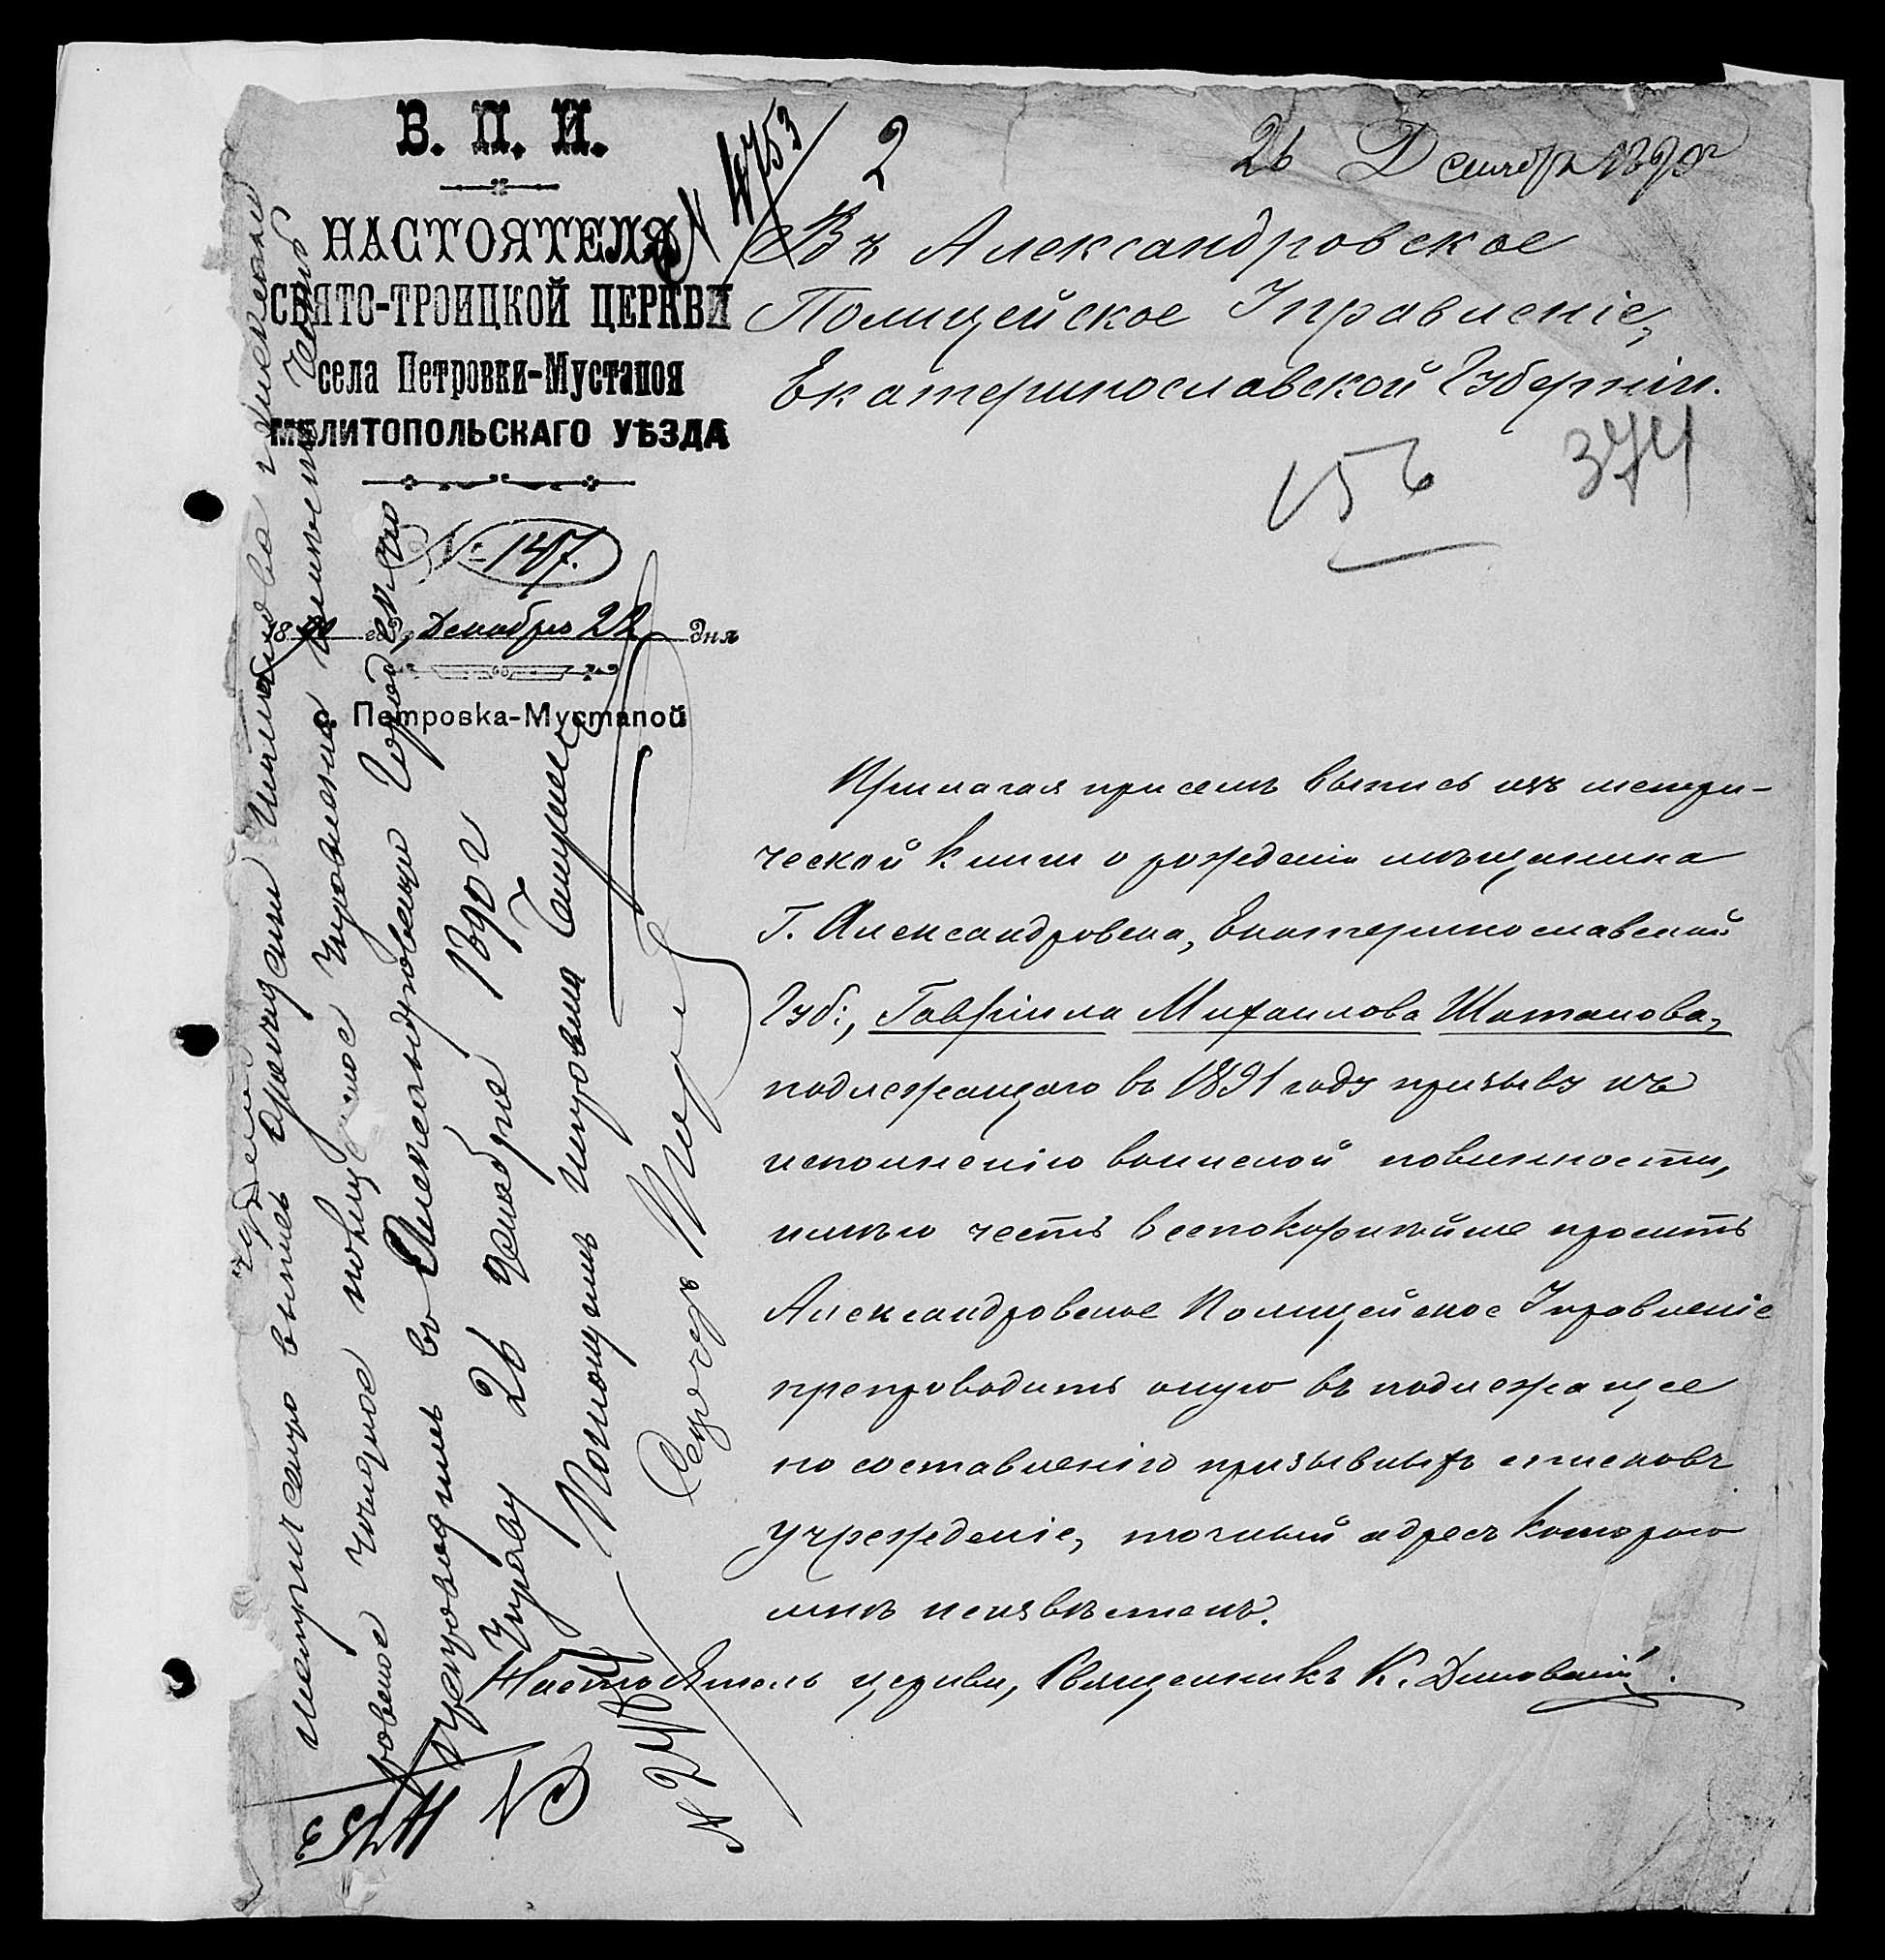 В. П. И.
НАСТОЯТЕЛЯ
СВЯТО-ТРОИЦКОЙ ЦЕРКВИ
села Петровки-Мустапоя
МЕЛИТОПОЛЬСКАГО УѢЗДА
№ 147.
1890 года, Декабря 22 дня
с. Петровка-Мустапой
№ 4753
2
26 Декабря 1890 г
Въ Александровское
Полицейское Управленіе,
Екатеринославской Губерніи.
156
374
Прилагая при семъ выпись изъ метри-
ческой книги о рожденіи мѣщанина
Г. Александровска, Екатеринославской
Губ:, Гавріила Михаилова Шаталова,
подлежащаго въ 1891 году призыву къ
исполненію воинской повинности,
имѣю честь всепокорнѣйше просить
Александровское Полицейское Управленіе
препроводить оную въ подлежащее
по составленію призывныхъ списковъ
учрежденіе, точный адресъ котораго
мнѣ неизвѣстенъ.
Настоятель церкви, Священникъ К. Дишовскій.
метрическую выпись Гавріила Шаталова
ровское Уѣздное Полицейское Управленіе имѣетъ честь
препроводить въ Александровскую Городскую
Управу 26 Декабря 1890 г
Помощникъ Исправника
Секретарь
№ 4753